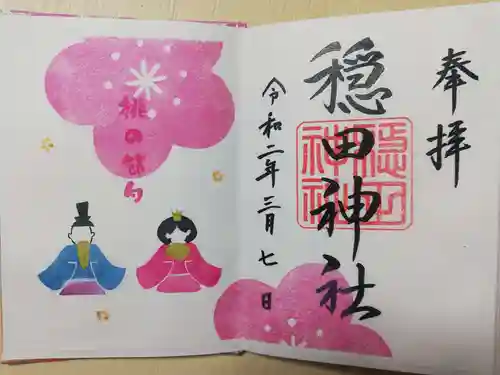 奉拝
穏田神社
穏田
神社
令和二年三月七日
桃の節句